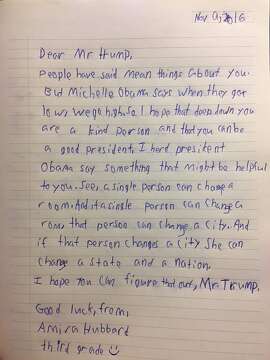 Nov 9, 2016
Dear Mr Hump,
People have said mean things about you.
But Michelle Obama says when they go
low we go high. So I hope that deep down you
are a kind person and that you can be
a good president, I herd presitent
Obama say something that might be helpful
to you. See, a single person can change a
room. And if a single person can change a
room, that person can change a city. And
if that person changes a city She can
change a state and a nation.
I hope you can figure that out, Mr Trump.
Good luck, from,
Amira Hubbard
third grade